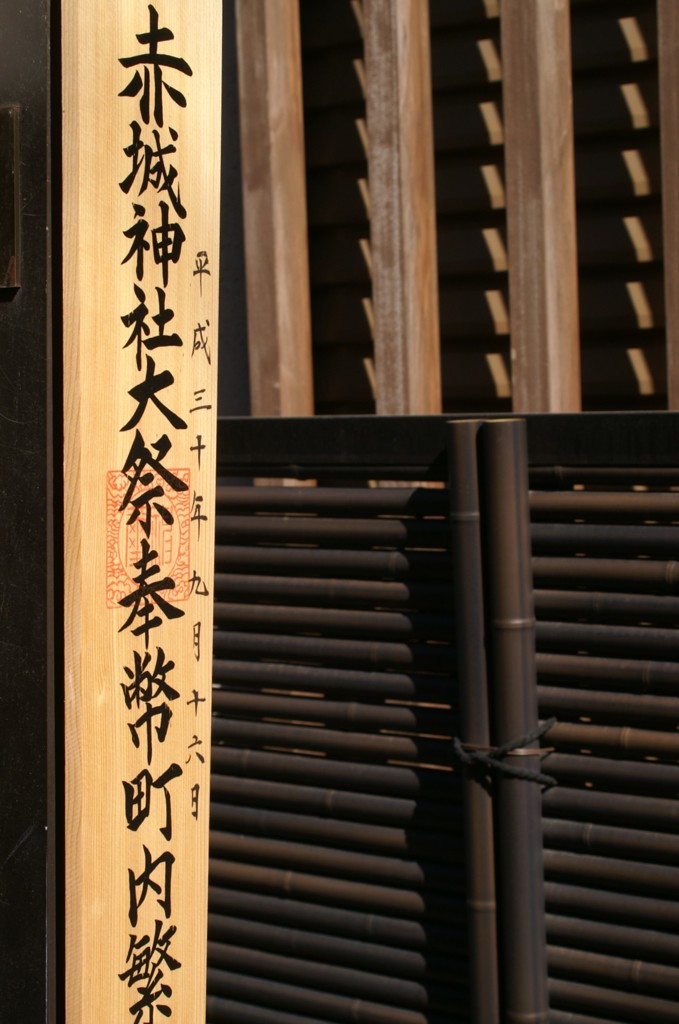 赤城神社大祭奉幣町内繁
平成三十年九月十六日